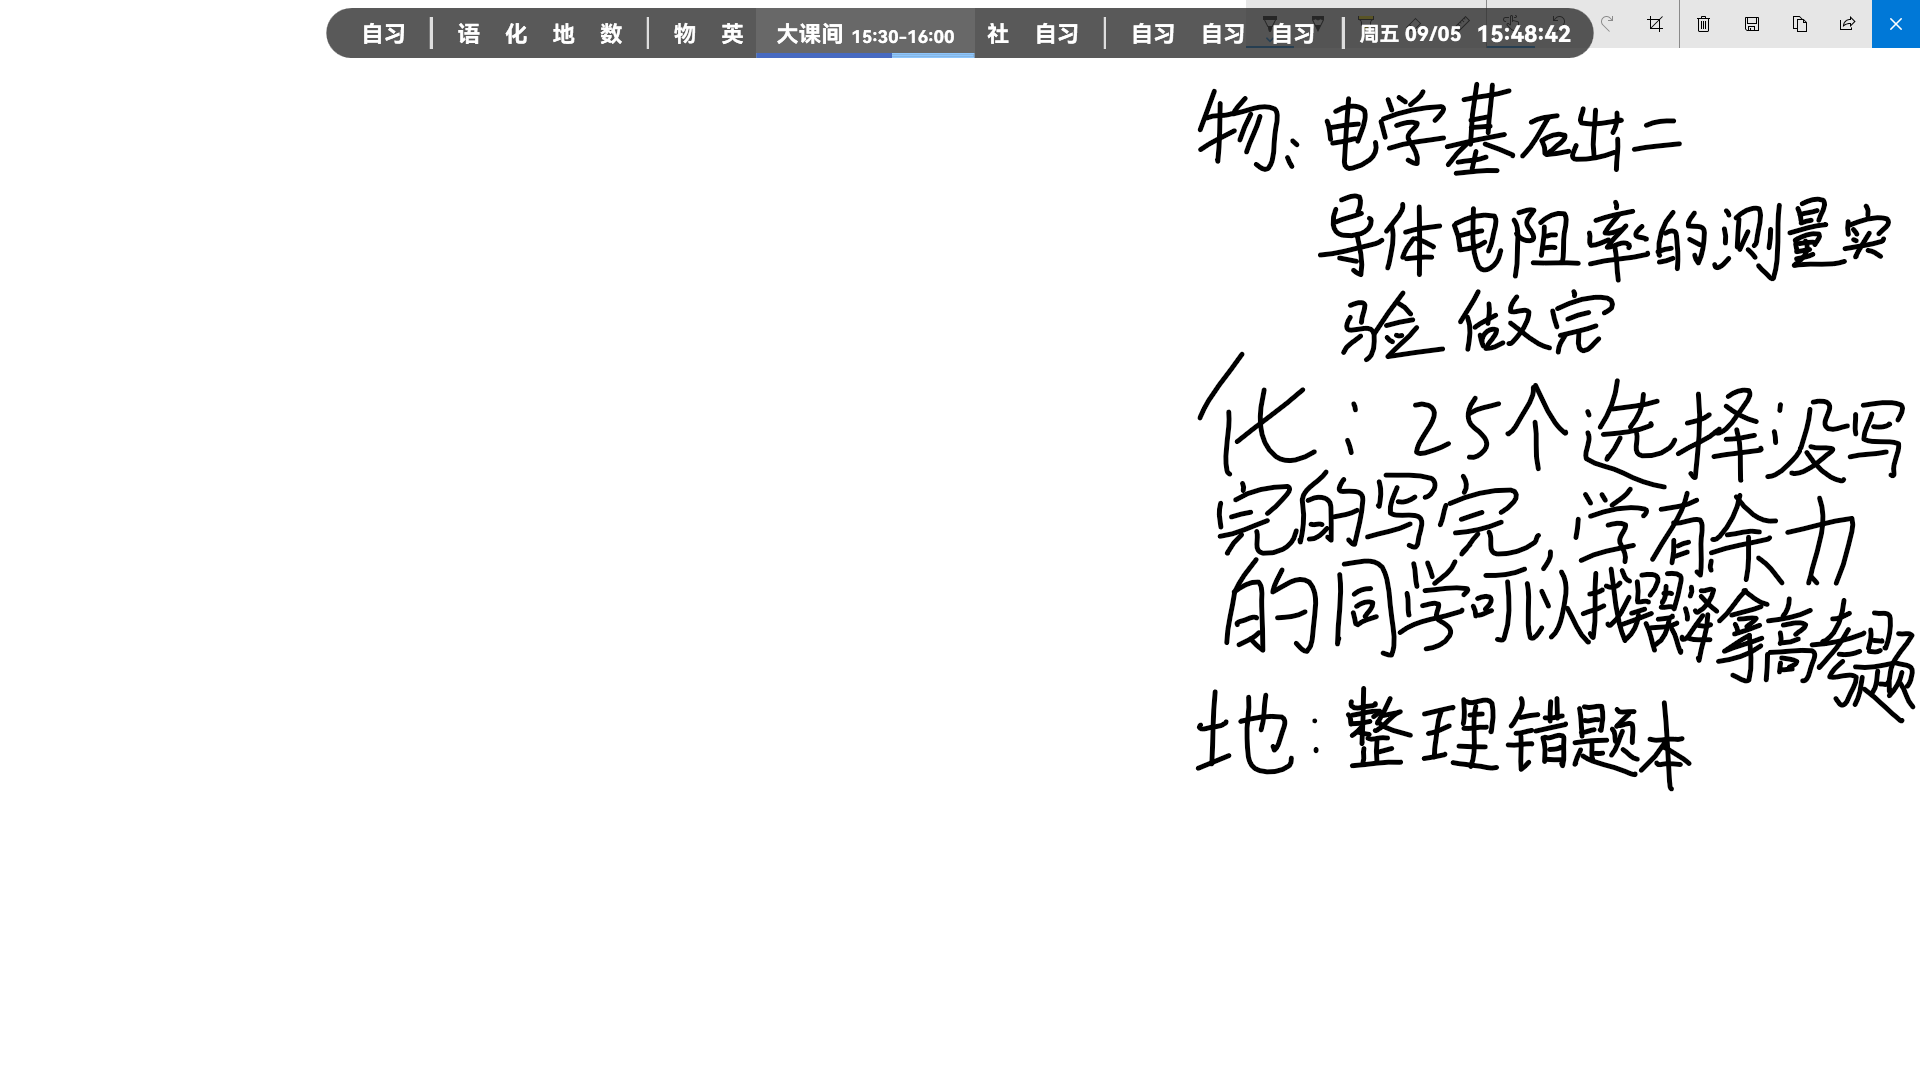 自习 | 语 化 地 数 | 物 英 大课间 15:30-16:00 社 自习 | 自习 自习 自习 | 周五 09/05 15:48:42
物：电学基础二
导体电阻率的测量实
验做完
化：25个选择没写
完的写完，学有余力
的同学可以找 拿高考题
地：整理错题本